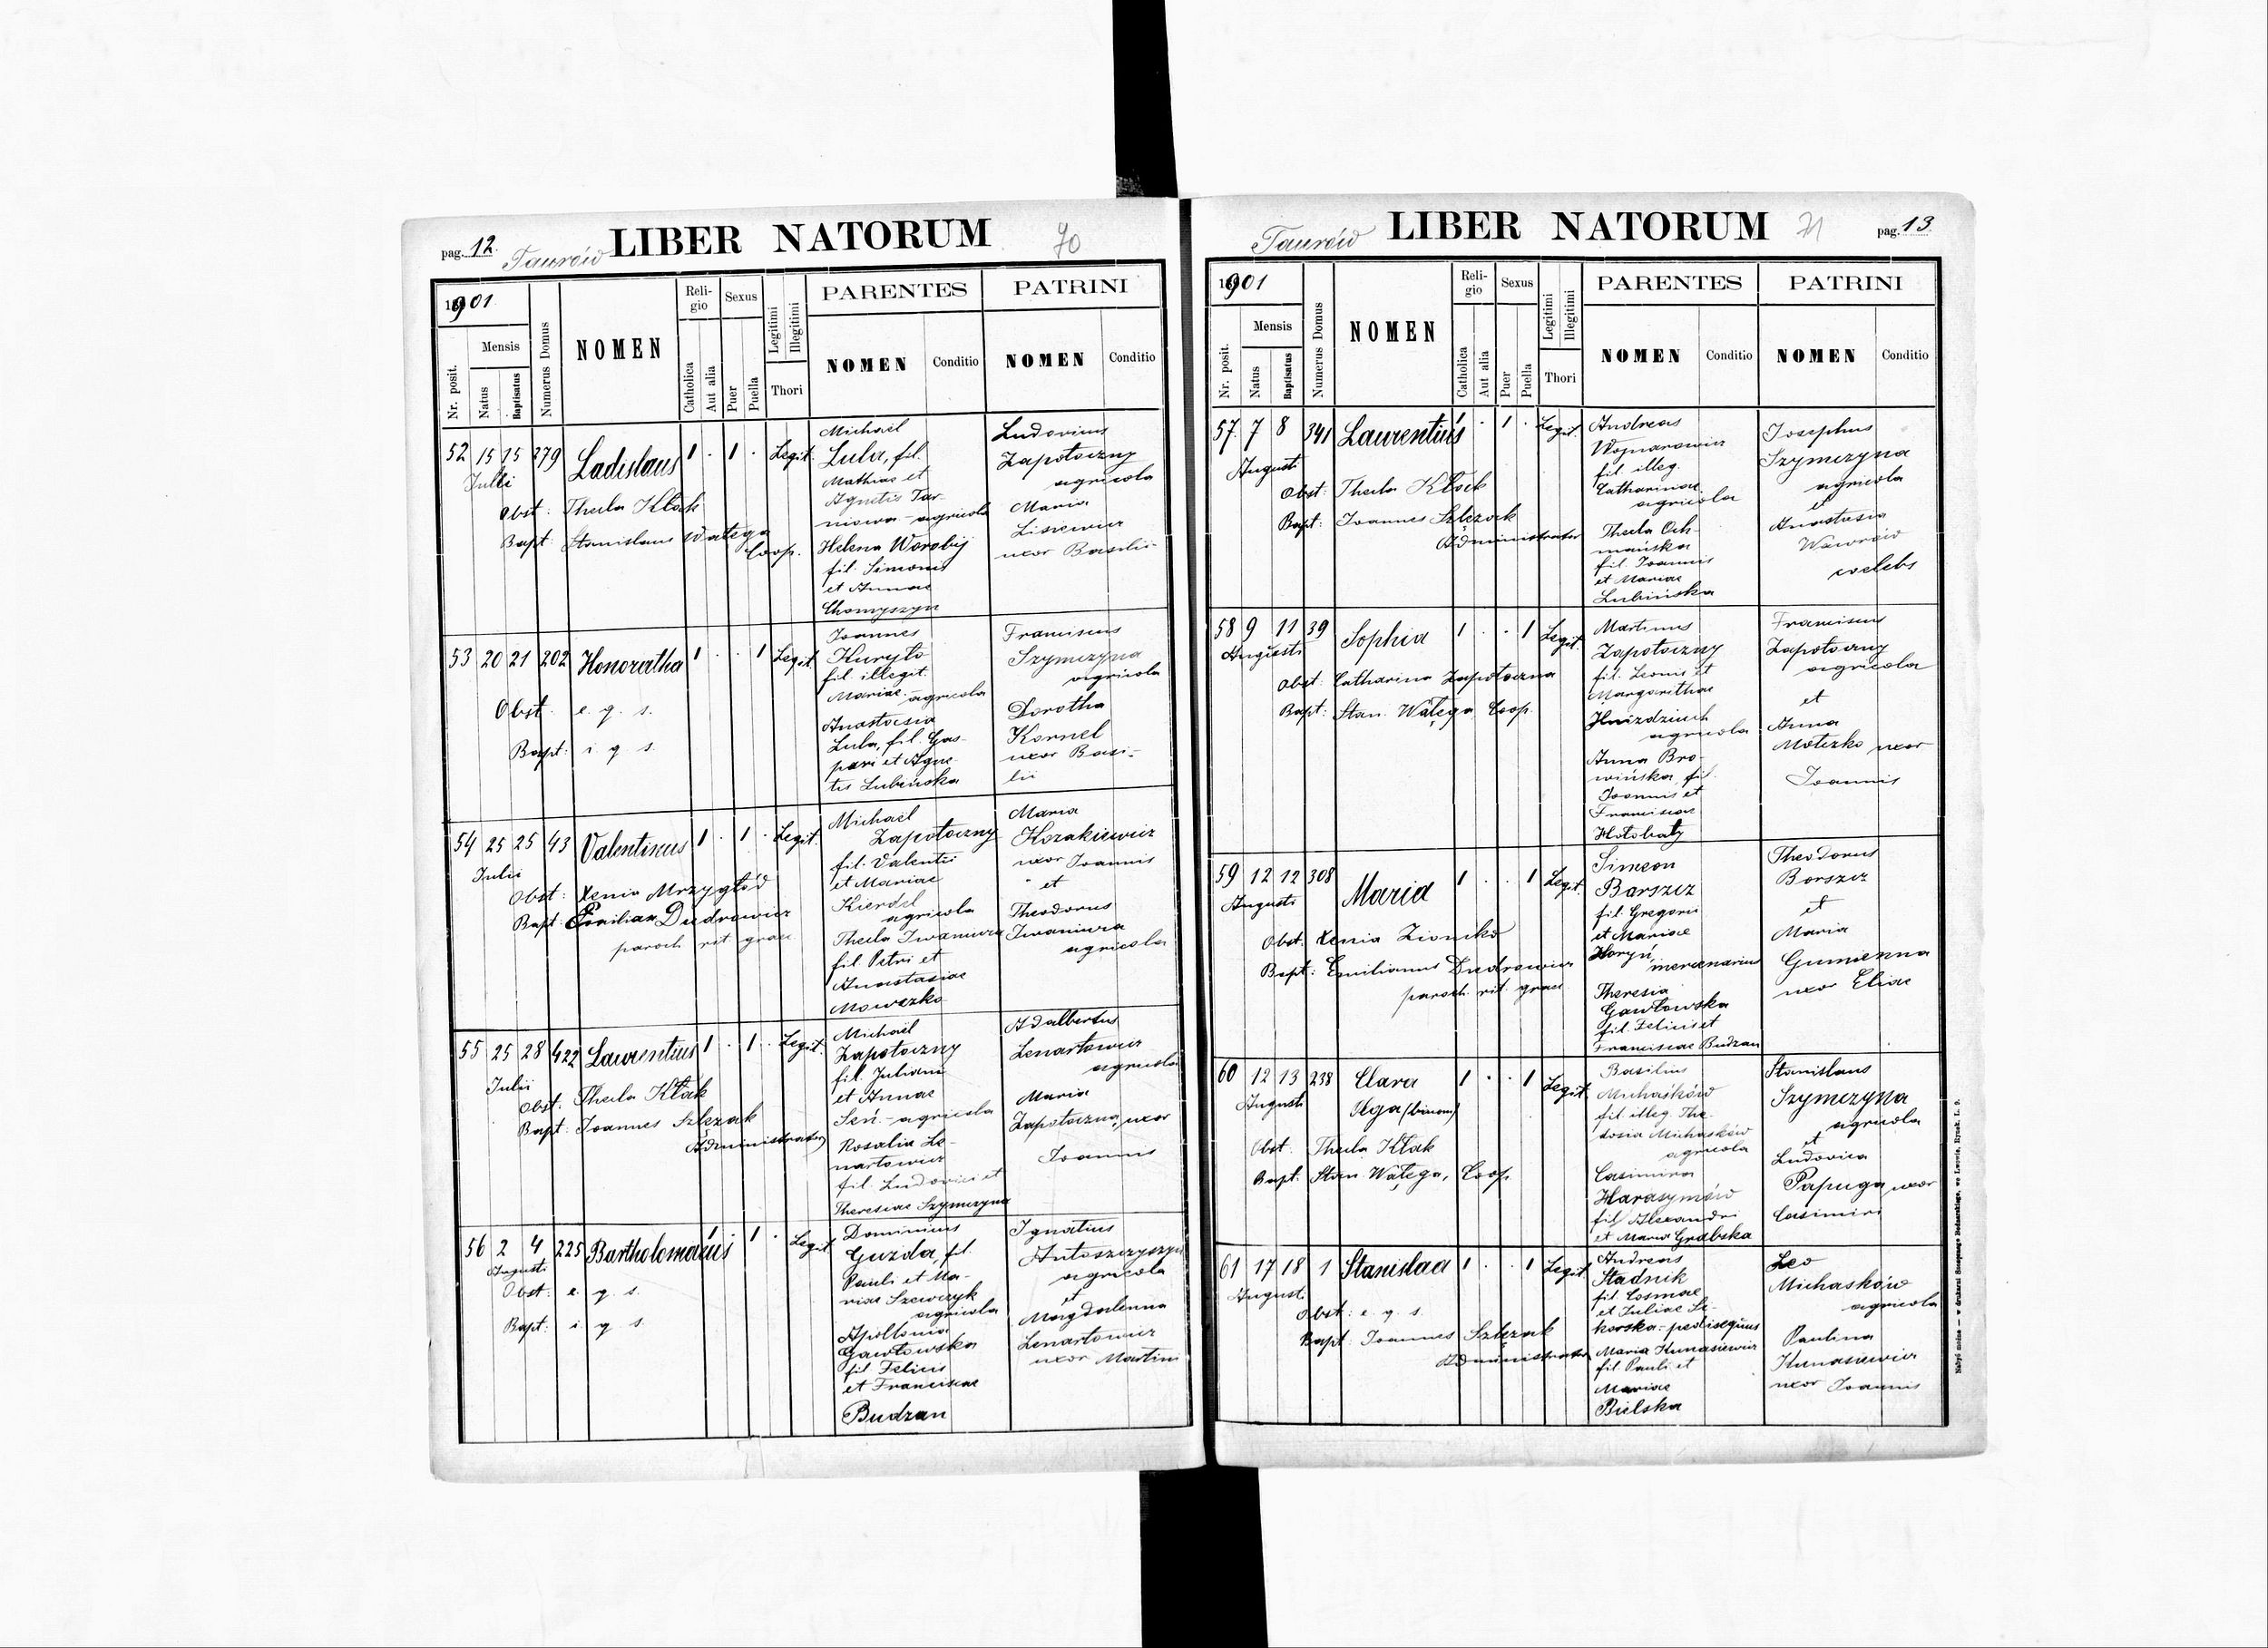 pag. 12.
Taurów
LIBER NATORUM
70
1901
Nr. posit.
Mensis
Natus
Baptisatus
Numerus Domus
NOMEN
Religio
Catholica
Aut alia
Sexus
Puer
Puella
Legitimi
Illegitimi
Thori
PARENTES
NOMEN
Conditio
PATRINI
NOMEN
Conditio
52 15 15 279 Ladislaus 1 . 1 . Legit.
Julii
Obst: Thecla Kłak
Bapt: Stanislaus Wałęga
Coop.
Michael
Lula, fil.
Mathiae et
Agnetis Tar-
nowa - agricola
Helena Worobij
fil. Simonis
et Annae
Chomyszyn
Ludovicus
Zapotoczny
agricola
Maria
Lisiewicz
uxor Basilii
53 20 21 202 Honoratha 1 . . 1 Legit.
Obst. e. q. s.
Bapt: i. q. s.
Joannes
Kuryło
fil. illegit.
Mariae - agricola
Anastasia
Lula, fil. Gas-
pari et Agne-
tis Lubińska
Franciscus
Szymczyna
agricola
Dorotha
Kornel
uxor Basi-
lii
54 25 25 43 Valentinus 1 . 1 . Legit.
Julii
Obst: Xenia Mrzygłód
Bapt: Emilian Dudrowicz
paroch. rit. graec.
Michael
Zapotoczny
fil. Valentii
et Mariae
Kierdel
agricola
Thecla Iwaniura
fil. Petri et
Anastasiae
Mowczko
Maria
Kozakiewicz
uxor Joannis
et
Theodorus
Iwaniura
agricola
55 25 28 422 Laurentius 1 . 1 . Legit.
Julii
Obst: Thecla Kłak
Bapt: Joannes Szlęzak
Administrator
Michael
Zapotoczny
fil. Juliani
et Annae
Seń - agricola
Rosalia Le-
nartowicz
fil. Ludovici et
Theresiae Szymczyna
Adalbertus
Lenartowicz
agricola
Maria
Zapotoczna, uxor
Joannis
56 2 4 225 Bartholomaeus 1 . 1 . Legit.
Augusti
Obst: e. q. s.
Bapt: i. q. s.
Dominicus
Guzda, fil.
Pauli et Ma-
riae Szewczyk
agricola
Apollonia
Gawłowska
fil. Felicis
et Franciscae
Budzan
Ignatius
Antoszczyszyn
agricola
et
Magdalenna
Lenartowicz
uxor Martini
Taurów
LIBER NATORUM
71
pag. 13.
1901
Nr. posit.
Mensis
Natus
Baptisatus
Numerus Domus
NOMEN
Religio
Catholica
Aut alia
Sexus
Puer
Puella
Legitimi
Illegitimi
Thori
PARENTES
NOMEN
Conditio
PATRINI
NOMEN
Conditio
57. 7 8 341 Laurentius . 1 . Legit.
Augusti
Obst: Thecla Kłock
Bapt: Joannes Szlęzak
Administrator
Andreas
Wojnarowicz
fil. illeg.
Catharinae
agricola
Thecla Och-
mańska
fil. Joannis
et Mariae
Lubińska
Josephus
Szymczyna
agricola
et
Anastasia
Wawrów
coelebs
58 9 11 39 Sophia 1 . . 1 Legit.
Augusti
Obst: Catharina Zapotoczna
Bapt: Stan. Wałęga, Coop.
Martinus
Zapotoczny
fil. Leonis et
Margarithae
Hnizdziuch
agricola
Anna Bro-
wińska fil.
Joannis et
Franciscae
Hołobaty
Franciscus
Zapotoczny
agricola
et
Anna
Motczko uxor
Joannis
59 12 12 308 Maria 1 . . 1 Legit.
Augusti
Obst. Xenia Zionko
Bapt: Emilianus Dudrowicz
paroch. rit. graec.
Simeon
Barszcz
fil. Gregorii
et Mariae
Horyń,
mercenarius
Theresia
Gawłowska
fil. Felicis et
Franciscae Budzan
Theodorus
Borszcz
et
Maria
Gumienna
uxor Eliae
60 12 13 238 Clara 1 . . 1 Legit.
Augusti
Olga (binom)
Obst. Thecla Kłak
Bapt. Stan. Wałęga, Coop.
Basilius
Michasków
fil. illeg. The-
dosia Michasków
agricola
Casimira
Harasymów
fil. Alexandri
et Maria Grabska
Stanislaus
Szymczyna
agricola
et
Ludovica
Papuga uxor
Casimiri
61 17 18 1 Stanislaa 1 . . 1 Legit.
Augusti
Obst: e. q. s.
Bapt: Joannes Szlęzak
Administrator
Andreas
Stadnik
fil. Cosmae
et Juliae Si-
korska: pedisequus
Maria Kunasiewicz
fil. Pauli et
Mariae
Bielska
Leo
Michasków
agricola
Paulina
Kunasiewicz
uxor Joannis